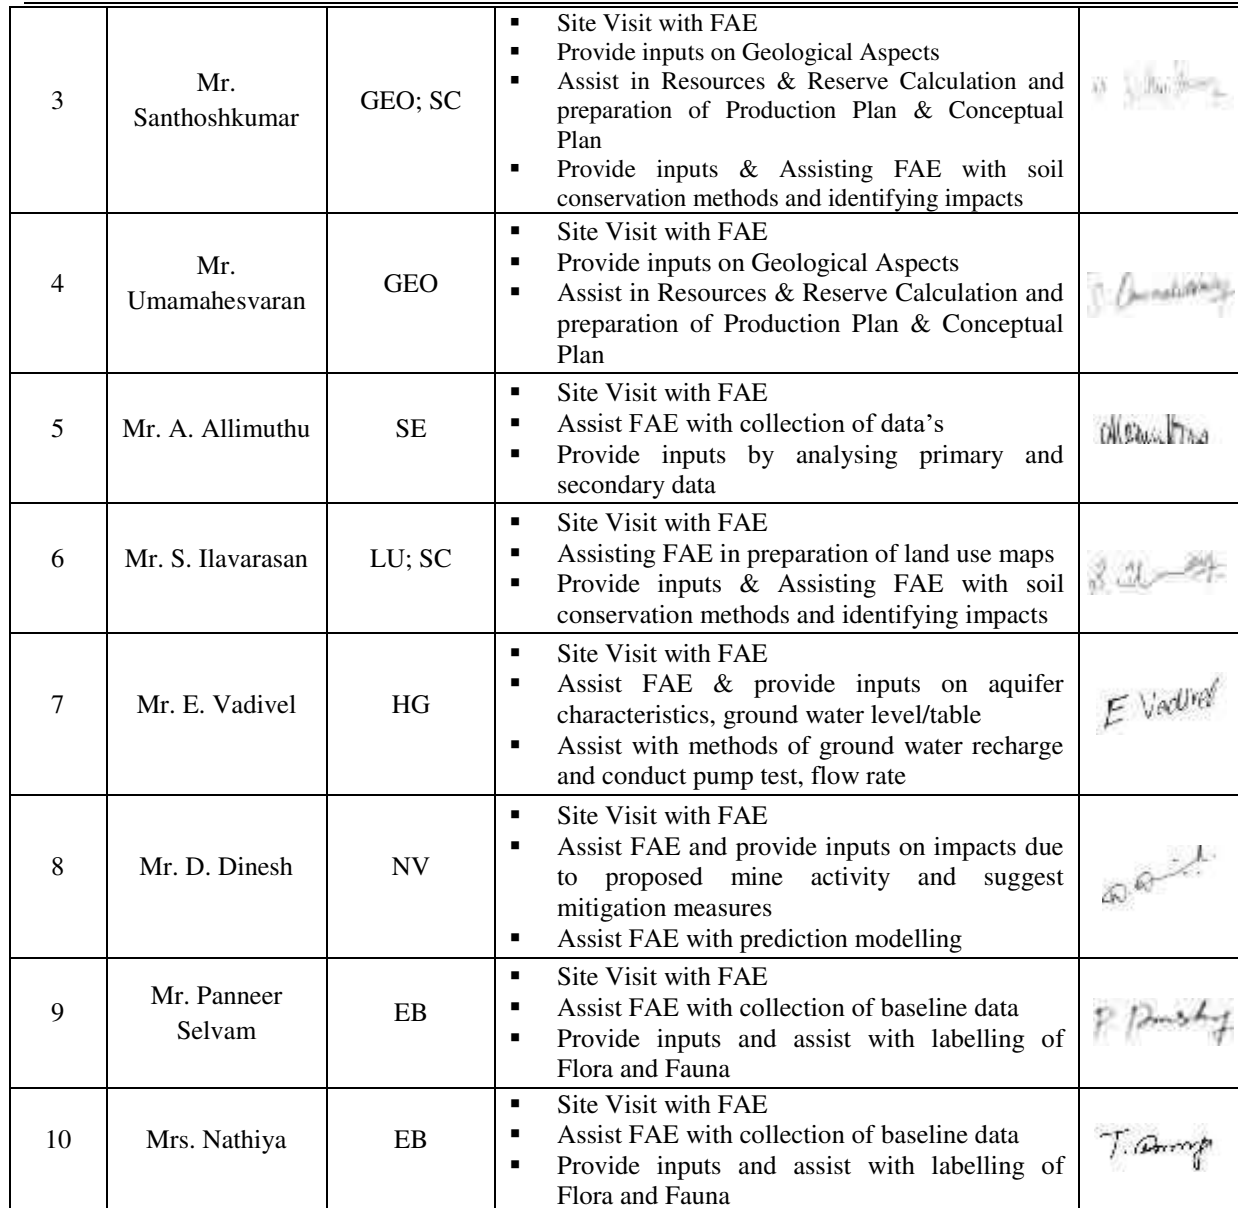 3
Mr.
Santhoshkumar
GEO; SC
▪ Site Visit with FAE
▪ Provide inputs on Geological Aspects
▪ Assist in Resources & Reserve Calculation and
preparation of Production Plan & Conceptual
Plan
▪ Provide inputs & Assisting FAE with soil
conservation methods and identifying impacts
4
Mr.
Umamahesvaran
GEO
▪ Site Visit with FAE
▪ Provide inputs on Geological Aspects
▪ Assist in Resources & Reserve Calculation and
preparation of Production Plan & Conceptual
Plan
5
Mr. A. Allimuthu
SE
▪ Site Visit with FAE
▪ Assist FAE with collection of data’s
▪ Provide inputs by analysing primary and
secondary data
6
Mr. S. Ilavarasan
LU; SC
▪ Site Visit with FAE
▪ Assisting FAE in preparation of land use maps
▪ Provide inputs & Assisting FAE with soil
conservation methods and identifying impacts
7
Mr. E. Vadivel
HG
▪ Site Visit with FAE
▪ Assist FAE & provide inputs on aquifer
characteristics, ground water level/table
▪ Assist with methods of ground water recharge
and conduct pump test, flow rate
E Vadivel
8
Mr. D. Dinesh
NV
▪ Site Visit with FAE
▪ Assist FAE and provide inputs on impacts due
to proposed mine activity and suggest
mitigation measures
▪ Assist FAE with prediction modelling
9
Mr. Panneer
Selvam
EB
▪ Site Visit with FAE
▪ Assist FAE with collection of baseline data
▪ Provide inputs and assist with labelling of
Flora and Fauna
10
Mrs. Nathiya
EB
▪ Site Visit with FAE
▪ Assist FAE with collection of baseline data
▪ Provide inputs and assist with labelling of
Flora and Fauna